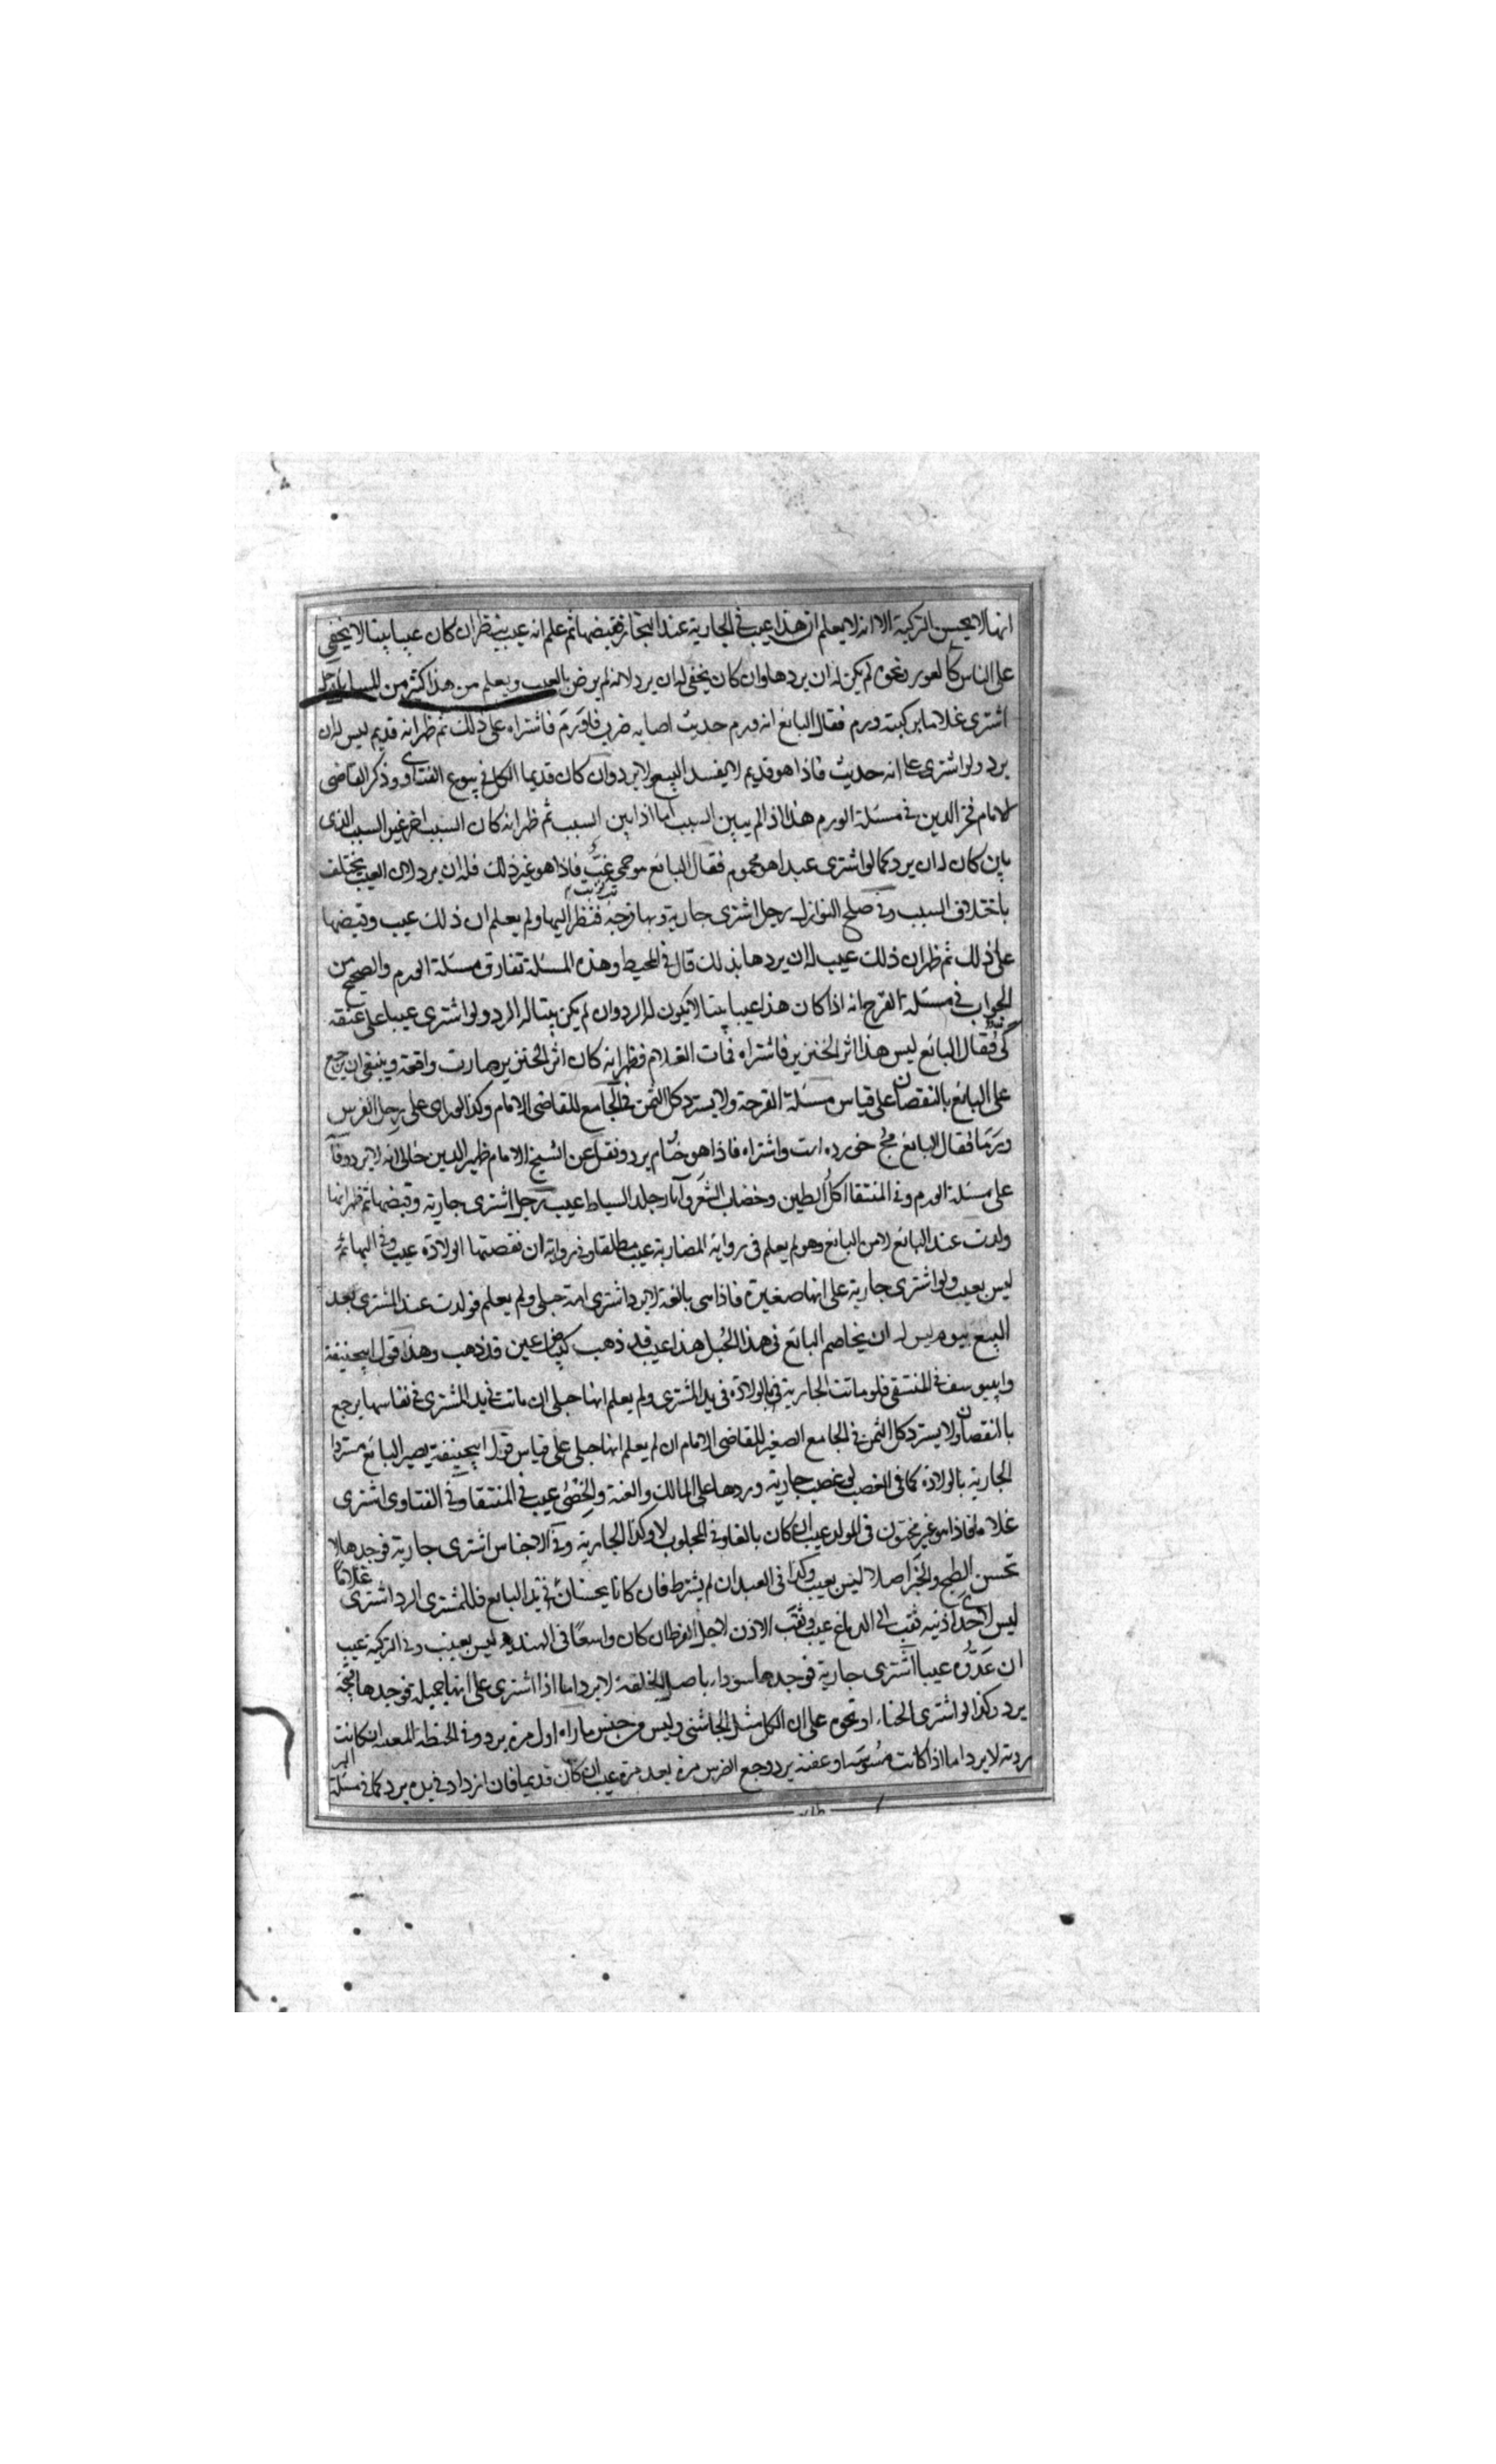 انها لا يحسن التركية الا انه لا يعلم ان هذا عيب فى الجارية عند التجار فقبضها ثم علم انه عيب ينظر ان كان عيبا بينا لا يخفى
على الناس كالعور ونحوه لم يكن له ان يردها وان كان يخفى له ان يرد لانه لم يرض بالعيب ويعلم من هذا كثير من المسايل رجل
اشترى غلاما بركبته ورم فقال البائع انه ورم حديث اصابه ضرب فاورم فاشتراه على ذلك ثم ظهر انه قديم ليس له ان
يرد ولو اشترى على انه حديث فاذا هو قديم لا يفسد البيع ولا يرد وان كان قديما الكل فى بيوع الفتاوى وذكر القاضى
الامام فخر الدين فى مسئلة الورم هذا اذا لم يبين السبب اما اذا بين السبب ثم ظهر انه كان السبب اخر غير السبب الذى
بين كان له ان يرد كما لو اشترى عبدا هو محموم فقال البائع هو حمى غب فاذا هو غير ذلك فله ان يرد لان العيب يختلف
باختلاف السبب وفى صلح النوازل رجل اشترى جارية وبها قرحة فنظر اليها ولم يعلم ان ذلك عيب وقبضها
على ذلك ثم ظهر ان ذلك عيب له ان يردها بذلك قال فى المحيط وهذه المسئلة تفارق مسئلة الورم والصحيح من
الجواب فى مسئلة القرح انه اذا كان هذا عيبا بينا لا يكون له الرد وان لم يكن بينا له الرد ولو اشترى عيبا على عنقه
كى فقال البائع ليس هذا اثر الخنزير فاشتراه فمات الغلام فظهر انه كان اثر الخنزير صارت واقعة وينبغى ان يرجع
على البائع بالنقصان على قياس مسئلة القرحة ولا يسترد كل الثمن فى الجامع للقاضى الامام وكذا لو راى على رجل الفرس
ورما فقال البائع خورده است واشتراه فاذا هو خنام يرد ونقل عن الشيخ الامام ظهير الدين خالى انه لا يرد وقال
على مسئلة الورم وفى المنتقا اكل الطين وخضاب الشعر وآثار جلد السياط عيب رجل اشترى جارية وقبضها ثم ظهر انها
ولدت عند البائع لا من البائع وهو لم يعلم فى رواية المضاربة عيب مطلقا وفى رواية ان نقصتها الولادة عيب وفى البهائم
ليس بعيب ولو اشترى جارية على انها صغيرة فاذا هى بالغة لا يرد اشترى امة حبلى ولم يعلم فولدت عند المشترى بعد
البيع بيوم ليس له ان يخاصم البائع فى هذا الحبل هذا عيب قد ذهب كبياض عين قد ذهب وهذا قول ابيحنيفة
وابييوسف فى المنتقى فلو ماتت الجارية فى الولادة فى يد المشترى ولم يعلم انها حبلى ان ماتت فى يد المشترى فى نفاسها يرجع
بالنقصان ولا يسترد كل الثمن فى الجامع الصغير للقاضى الامام ان لم يعلم انها حبلى على قياس قول ابيحنيفة يصير البائع مستردا
الجارية بالولادة كما فى الغصب لو غصب جارية وردها على المالك والعنة والخصى عيب فى المنتقا وفى الفتاوى اشترى
غلاما فاذا هو غير مختون فى المولد عيب ان كان بالغا وفى المجلوب لا وكذا الجارية وفى الاجناس اشترى جارية فوجدها لا
تحسن الطبخ والخبز اصلا ليس بعيب وكذا فى العبد ان لم يشترط فان كانا يحسنان فى يد البائع فللمشترى الرد اشترى غلاما
ليس لاحدى اذنيه ثقب الى الدماغ عيب وثقب الاذن لاجل القرط ان كان واسعا فى الهندية ليس بعيب وفى التركية عيب
ان عدوه عيبا اشترى جارية فوجدها سوداء باصل الخلقة لا يرد اما اذا اشترى على انها جميلة فوجدها قبيحة
يرد وكذا لو اشترى الحناء او نحوه على ان الكل مثل الجاشنى وليس من جنس ما راه اول مرة يرد وفى الحنطة المعينة ان كانت
ردية لا يرد اما اذا كانت مسوسة او عفنة يرد وجع الضرس مرة بعد مرة عيب ان كان قديما فان ازداد فى يده يرد كما فى مسئلة